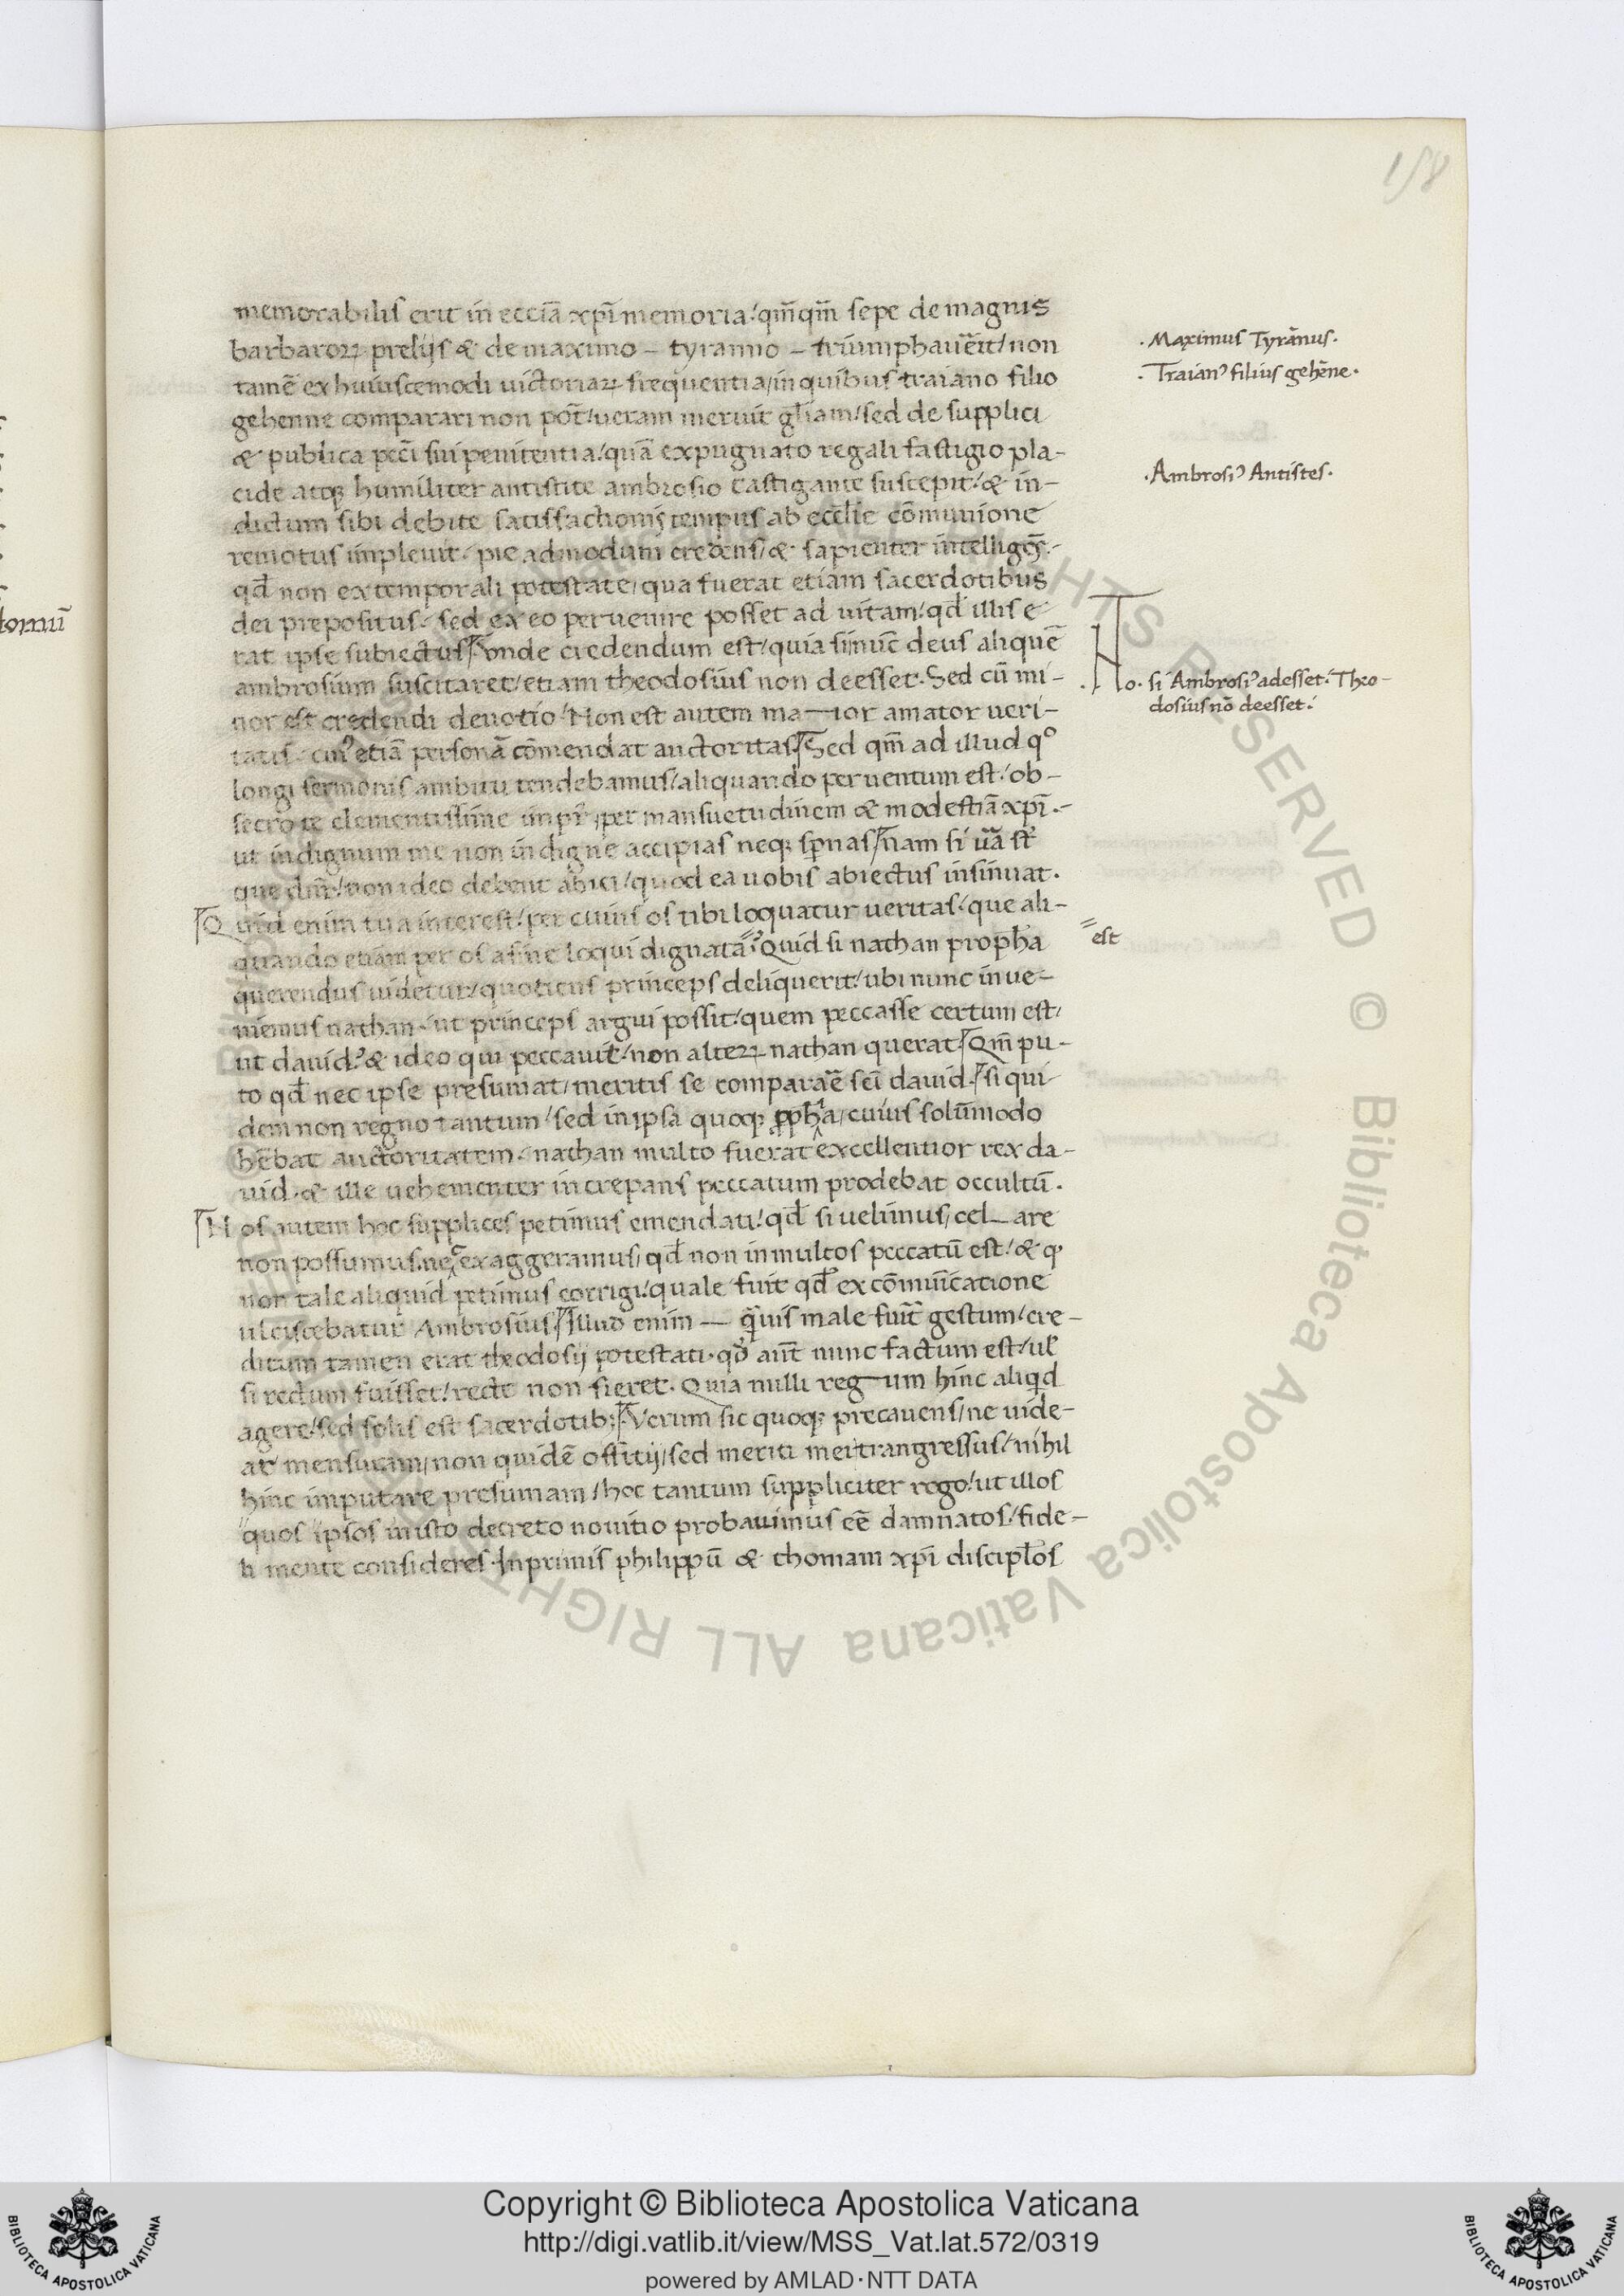 158
memorabilis erit in eccĩa xp̃i memoria/ qm̃qm̃ sepe de magnis
barbaroꝝ prelijs & de maximo – tyranno – triumphauẽit/ non
tamẽ ex huiuscemodi uictoriaꝝ frequentia/ in quibus traiano filio
gehenne comparari non pot̃/ ueram meruit gl̃iam/ sed de supplici
& publica pcc̃i sui penitentia/ quã expugnato regali fastigio pla-
cide atqꝫ humiliter antistite ambrosio castigante suscepit/ & in-
dictum sibi debite satisfactionis tempus ab eccl̃ie cõmunione
remotus impleuit. pie admodum credens/ & sapienter intelligẽs.
qđ non ex temporali potestate/ qua fuerat etiam sacerdotibus
dei prepositus. sed ex eo peruenire posset ad uitam/ qđ illis e
rat ipse subiectus. unde credendum est/ quia si nũc deus aliquẽ
ambrosium suscitaret/ etiam theodosius non deesset. Sed cũ mi-
nor est credendi deuotio/ Non est autem ma—ior amator ueri-
tatis. cuiꝰ etiã personã cõmendat auctoritas. Sed qm̃ ad illud qº
longi sermonis ambitu tendebamus/ aliquando peruentum est/ ob-
secro te clementissime imp̃r/ per mansuetudinem & modestiã xp̃i.
ut indignum me non indigne accipias neqꝫ sp̃nas/ nam si uã st̃
que dñr/ non ideo debent abici/ quod ea uobis abiectus insinuat.
Quid enim tua interest/ per cuius os tibi loquatur ueritas/ que ali-
quando etiam per os asine loqui dignata? Quid si nathan prop̃ha
querendus uidetur/ quotiens princeps deliquerit/ ubi nunc inue-
niemus nathan. ut princeps argui possit/ quem peccasse certum est/
ut dauid? & ideo qui peccauit/ non alteꝝ nathan querat. Qm̃ pu-
to qđ nec ipse presumat/ meritis se comparaẽ sc̃i dauid. si qui
dem non regno tantum/ sed in ipsa quoqꝫ ꝓph̃ia/ cuius solũmodo
hẽbat auctoritatem. nathan multo fuerat excellentior rex da-
uid. & ille uehementer increpans peccatum prodebat occultũ.
Nos autem hoc supplices petimus emendati/ qđ si uelimus/ cel—are
non possumus. nec exaggeramus/ qđ non in multos peccatũ est/ & qꝫ
non tale aliquid petimus corrigi/ quale fuit qđ excõmunicatione
ulciscebatur Ambrosius. Illud enim — q̃uis male fuit̃ gestum/ cre-
ditum tamen erat theodosij potestati. qđ aũt nunc factum est/ ul̃
si rectum fuisset/ recte non fieret. Quia nulli reg—um hinc aliqd
agere/ sed solis est sacerdotibꝫ. Verum sic quoqꝫ precauens/ ne uide-
ar mensuram/ non quidẽ offitij/ sed meriti mei trangressus/ nihil
hinc imputare presumam/ hoc tantum suppliciter rogo/ ut illos
quos ipsos in isto decreto nouitio probauimus eẽ damnatos/ fide-
li mente consideres. Inprimis philippũ & thomam xp̃i discipl̃os
. Maximus Tyrãnus.
. Traianꝰ filius gehẽne.
. Ambrosiꝰ Antistes.
. No. si Ambrosiꝰ adesset. Theo-
dosius nõ deesset.
est
ALL RIGHTS RESERVED © Biblioteca Apostolica Vaticana ALL RIGHTS
Copyright © Biblioteca Apostolica Vaticana
http://digi.vatlib.it/view/MSS_Vat.lat.572/0319
powered by AMLAD·NTT DATA
BIBLIOTECA APOSTOLICA VATICANA
BIBLIOTECA APOSTOLICA VATICANA